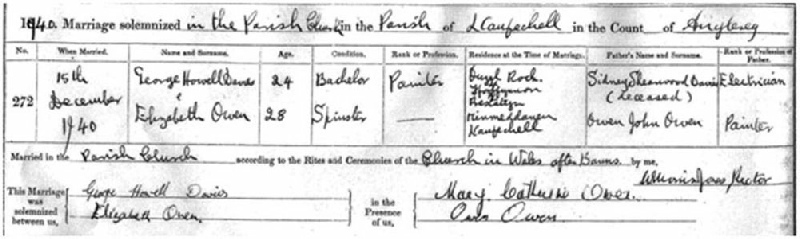 1940. Marriage solemnized in the Parish Church in the Parish of Llanfechell in the Count of Anglesey
No. When Married. Name and Surname. Age. Condition. Rank or Profession. Residence at the Time of Marriage. Father's Name and Surname. Rank or Profession of Father.
272 15th December 1940 George Howell Davies 24 Bachelor Painter Sidney Sherwood Davies (deceased) Electrician
& Elizabeth Owen 28 Spinster —— Llanfechell Owen John Owen Painter
Married in the Parish Church according to the Rites and Ceremonies of the Church in Wales after Banns. by me,
Rector
This Marriage was solemnized between us, George Howell Davies Elizabeth Owen. in the Presence of us, Mary Catherine Owen. Owen Owen.